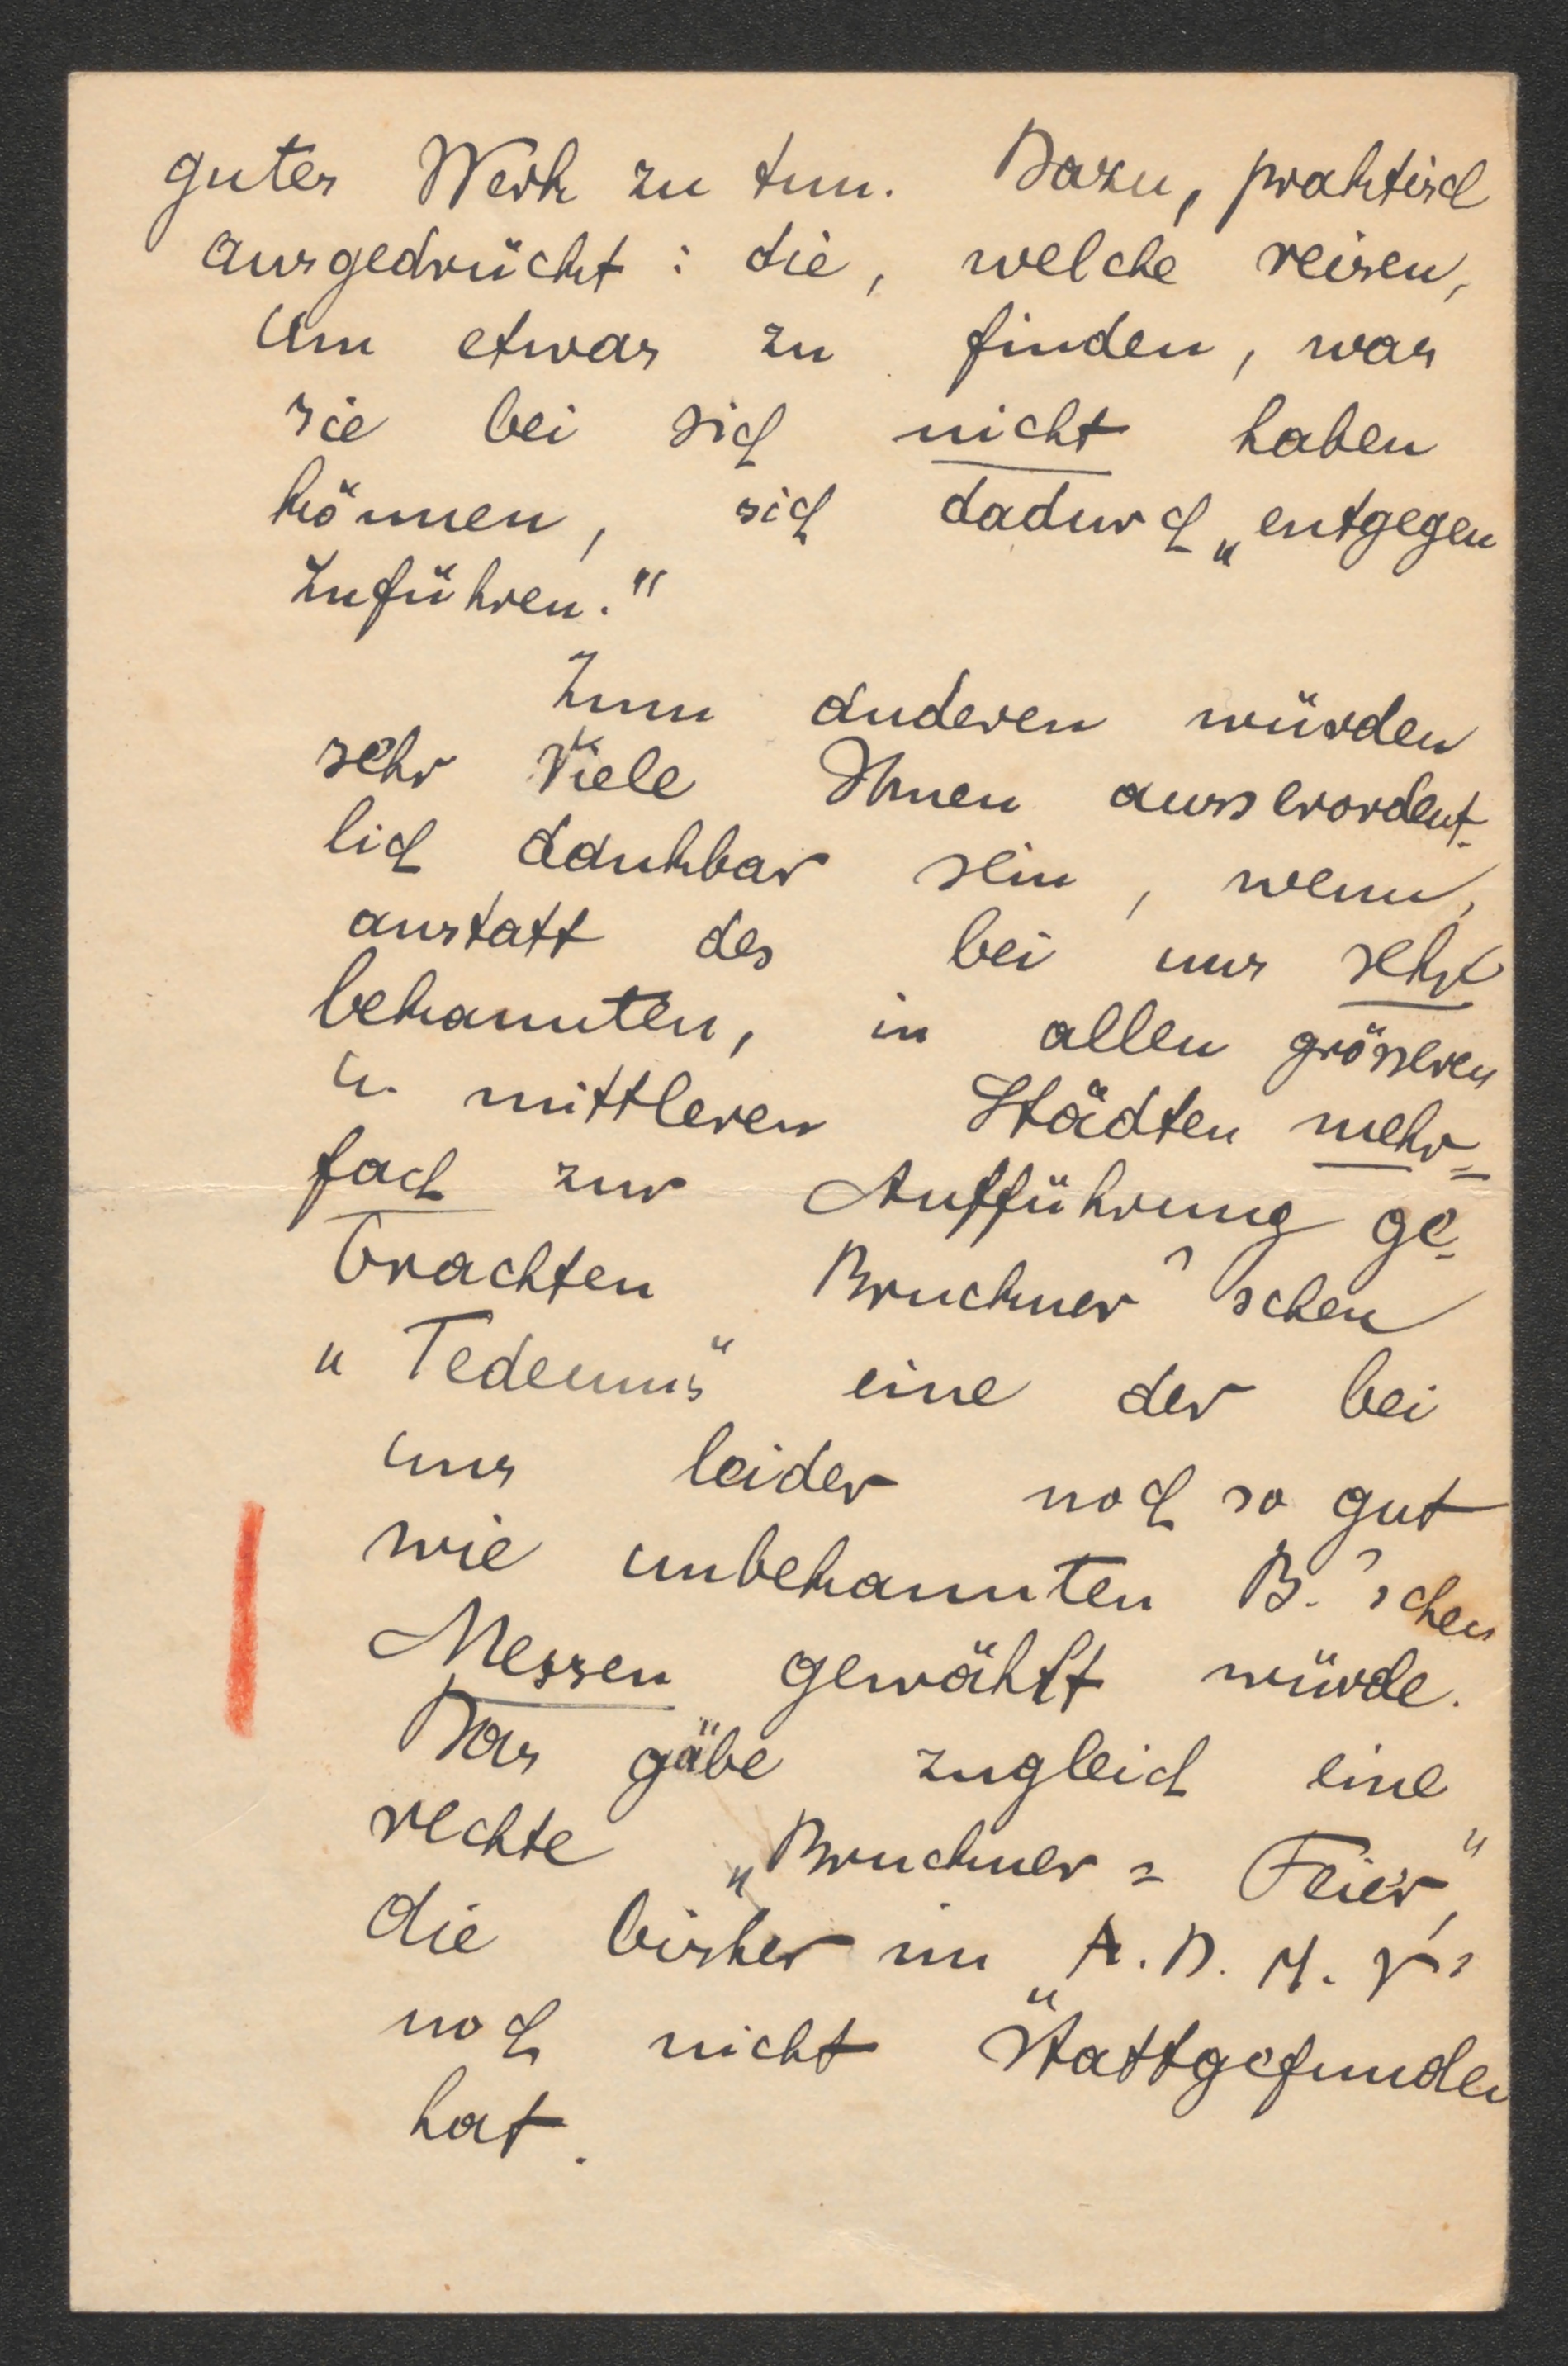 gutes Werk zu tun. Dazu, praktisch
ausgedrückt: die, welche reisen,
um etwas zu finden, was
sie bei sich nicht haben
können, sich dadurch „entgegen
zuführen."
Zum anderen würden
sehr Viele Ihnen ausserordent-
lich dankbar sein, wenn,
anstatt des bei uns sehr
bekannten, in allen grösseren
u. mittleren Städten mehr=
fach zur Aufführung ge-
brachten Bruckner'schen
„Tedeums" eine der bei
uns leider noch so gut
wie unbekannten B.'schen
Messen gewählt würde.
Das gäbe zugleich eine
rechte „Bruckner=Feier",
die bisher im A.D.M.V.
noch nicht stattgefunden
hat.